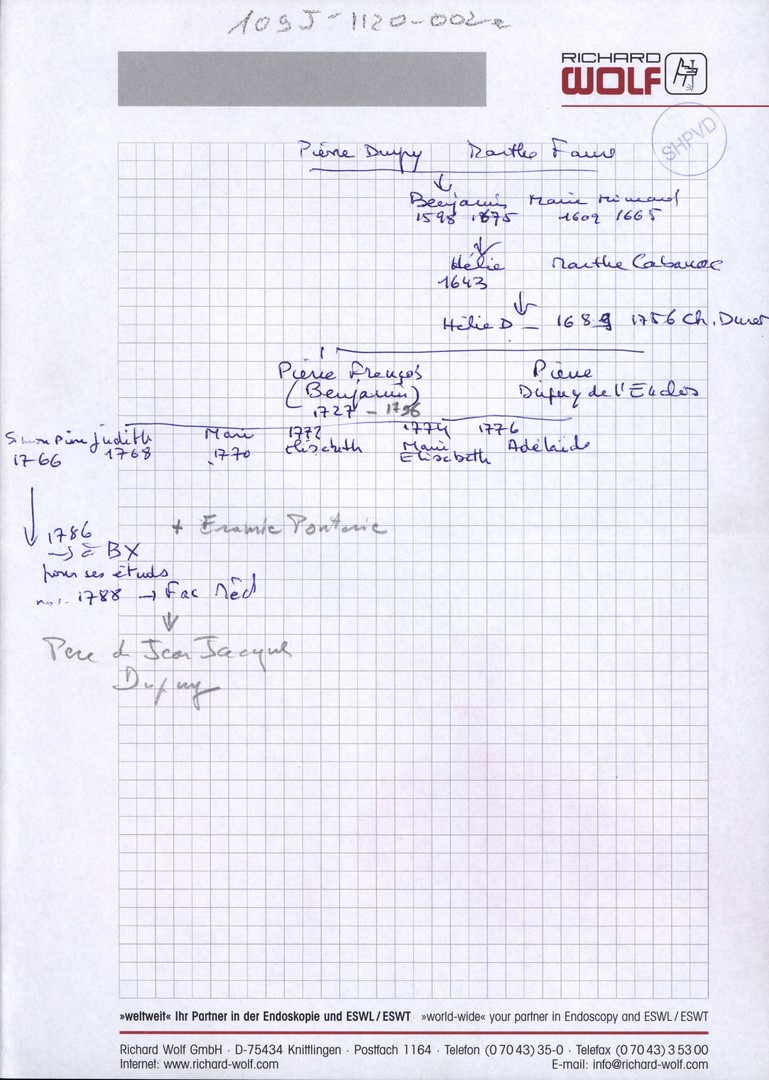 109J-1120-002e
RICHARD
WOLF
SHPVD
Pierre Dupuy Marthe Faure
Benjamin Marie
1598 1675 1602 1665
Hélie Marthe
1643
Hélie D - 1689 1756 Ch. Duret
Pierre François Pierre
(Benjamin) Dupuy de l'Enclos
1727 - 1796
Simon Pierre Judith Marie 1772 1774 1776
1766 1768 1770 Elisabeth Marie Adélaïde
Elisabeth
1786
→ à BX
pour ses études
1788 → Fac Méd
+
Pere d Jean Jacques
Dupuy
»weltweit« Ihr Partner in der Endoskopie und ESWL / ESWT »world-wide« your partner in Endoscopy and ESWL / ESWT
Richard Wolf GmbH · D-75434 Knittlingen · Postfach 1164 · Telefon (0 70 43) 35-0 · Telefax (0 70 43) 3 53 00
Internet: www.richard-wolf.com E-mail: info@richard-wolf.com